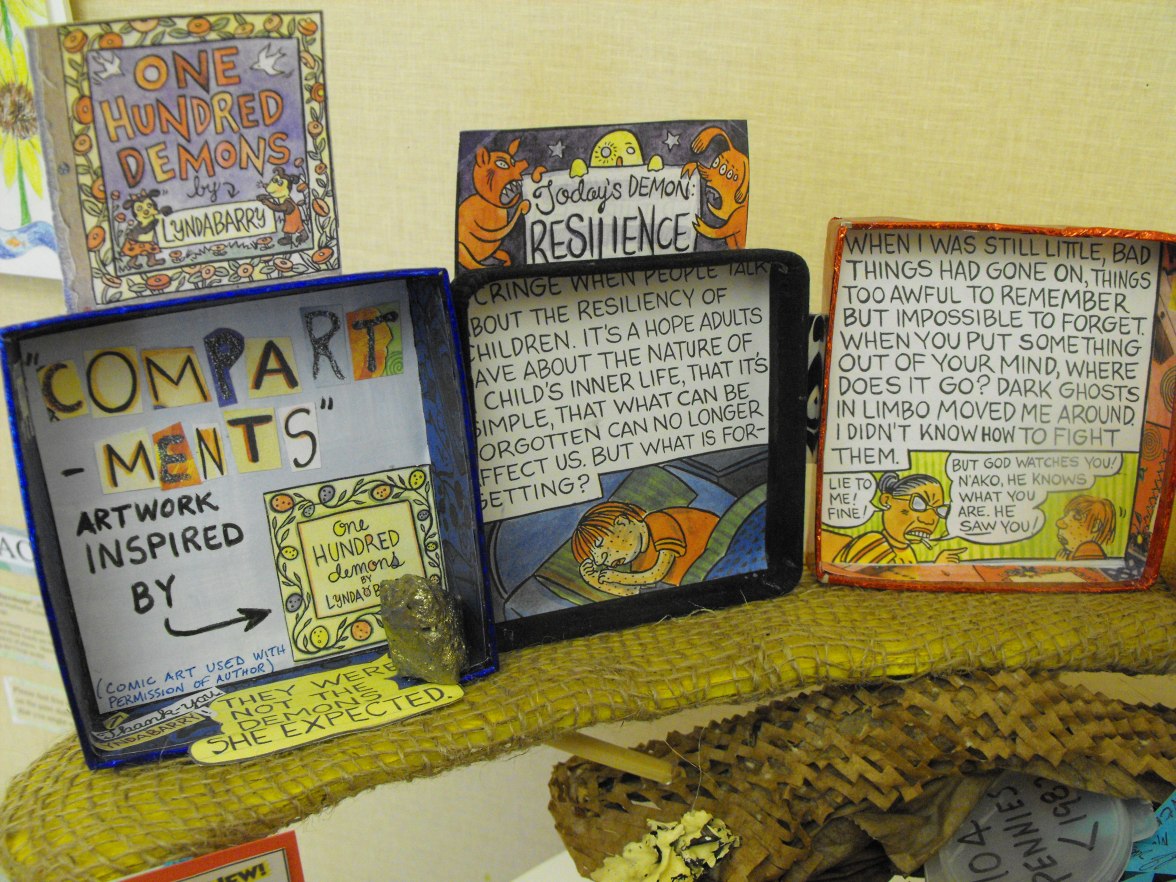 ONE
HUNDRED
DEMONS.
by
LYNDA BARRY
"COMPART
-MENTS"
ARTWORK
INSPIRED
BY
One
HUNDRED
demons
BY
LYNDA
(COMIC ART USED WITH
PERMISSION OF AUTHOR)
Thank-you
THEY WERE
NOT THE
DEMONS
SHE EXPECTED
Today's DEMON:
RESILIENCE
CRINGE WHEN PEOPLE TALK
BOUT THE RESILIENCY OF
CHILDREN. IT'S A HOPE ADULTS
AVE ABOUT THE NATURE OF
CHILD'S INNER LIFE, THAT IT'S
SIMPLE, THAT WHAT CAN BE
FORGOTTEN CAN NO LONGER
AFFECT US. BUT WHAT IS FOR-
GETTING?
WHEN I WAS STILL LITTLE, BAD
THINGS HAD GONE ON, THINGS
TOO AWFUL TO REMEMBER
BUT IMPOSSIBLE TO FORGET.
WHEN YOU PUT SOMETHING
OUT OF YOUR MIND, WHERE
DOES IT GO? DARK GHOSTS
IN LIMBO MOVED ME AROUND.
I DIDN'T KNOW HOW TO FIGHT
THEM.
LIE TO
ME!
FINE!
BUT GOD WATCHES YOU!
N'AKO, HE KNOWS
WHAT YOU
ARE. HE
SAW YOU!
104
PENNIES
NEW!